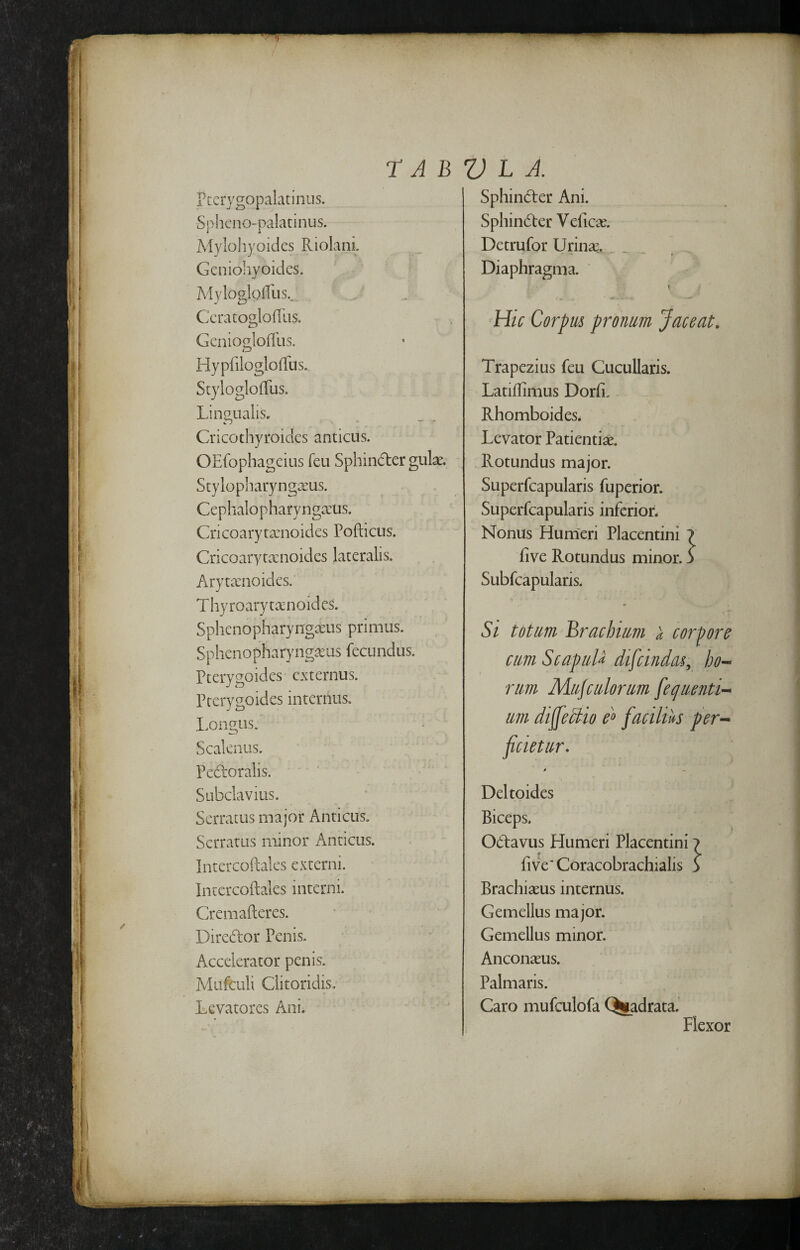 TABVLA.
Pterygopalatinus.
Spheno-palatinus.
Mylohyoides Riolani.
Geniohyoides.
Myloglossus.
Ceratoglossus.
Genioglossus.
Hypsiloglossus.
Styloglossus.
Lingualis.
Cricothyroides anticus.
OEsophageius seu Sphincter gulæ.
Stylopharyngæus.
Cephalopharyngæus.
Cricoarytænoides Posticus.
Cricoarytænoides lateralis.
Arytænoides.
Thyroarytænoides.
Sphenopharyngæus primus.
Sphenopharyngæus secundus.
Pterygoides externus.
Pterygoides internus.
Longus.
Scalenus.
Pectoralis.
Subclavius.
Serratus major Anticus.
Serratus minor Anticus.
Intercostales externi.
Intercostales interni.
Cremasteres.
Director Penis.
Accelerator penis.
Musculi Clitoridis.
Levatores Ani.
Sphincter Ani.
Sphincter Vesicæ.
Detrusor Urinæ.
Diaphragma.
Hic Corpus pronum Jaceat.
Trapezius seu Cucullaris.
Latissimus Dorsi.
Rhomboides.
Levator Patientiæ.
Rotundus major.
Superscapularis superior.
Superscapularis inferior.
Nonus Humeri Placentini
sive Rotundus minor.
Subscapularis.
Si totum Brachium à corpore
cum Scapulâ discindas, ho-
rum Musculorum sequenti-
um dissectio eò faciliùs per-
ficietur.
Deltoides
Biceps.
Octavus Humeri Placentini
sive Coracobrachialis
Brachiæus internus.
Gemellus major.
Gemellus minor.
Anconæus.
Palmaris.
Caro musculosa Quadrata.
Flexor